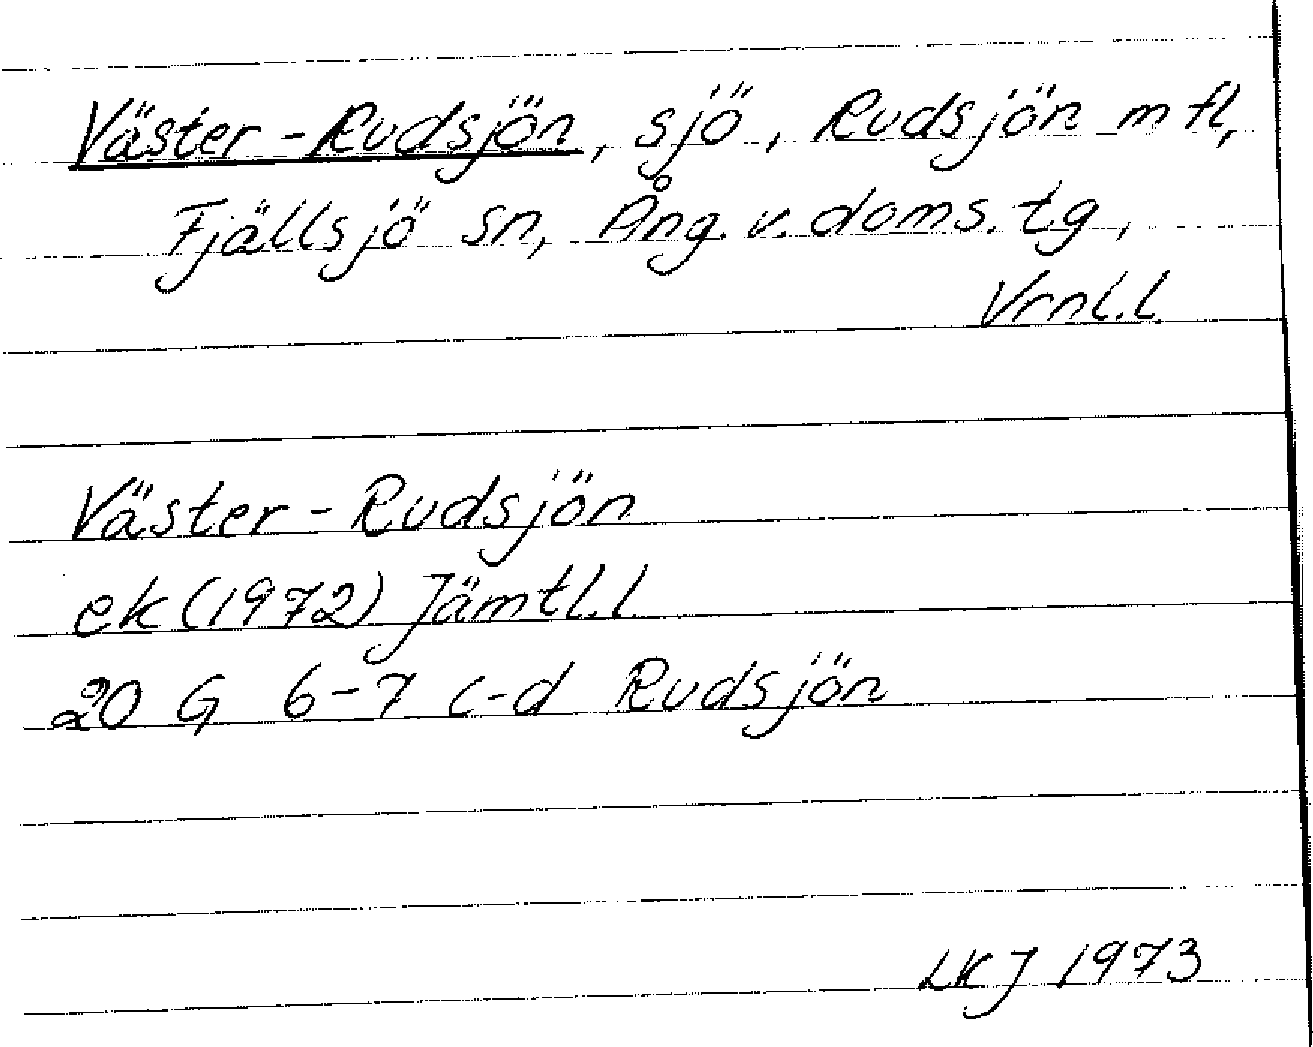 Väster-Rudsjön, sjö, Rudsjön m fl,
Fjällsjö sn, Ång. v. doms. tg,
Vrnl.l.
Väster-Rudsjön
ek (1972) Jämtl.l.
20 G 6-7 c-d Rudsjön
LKJ 1973